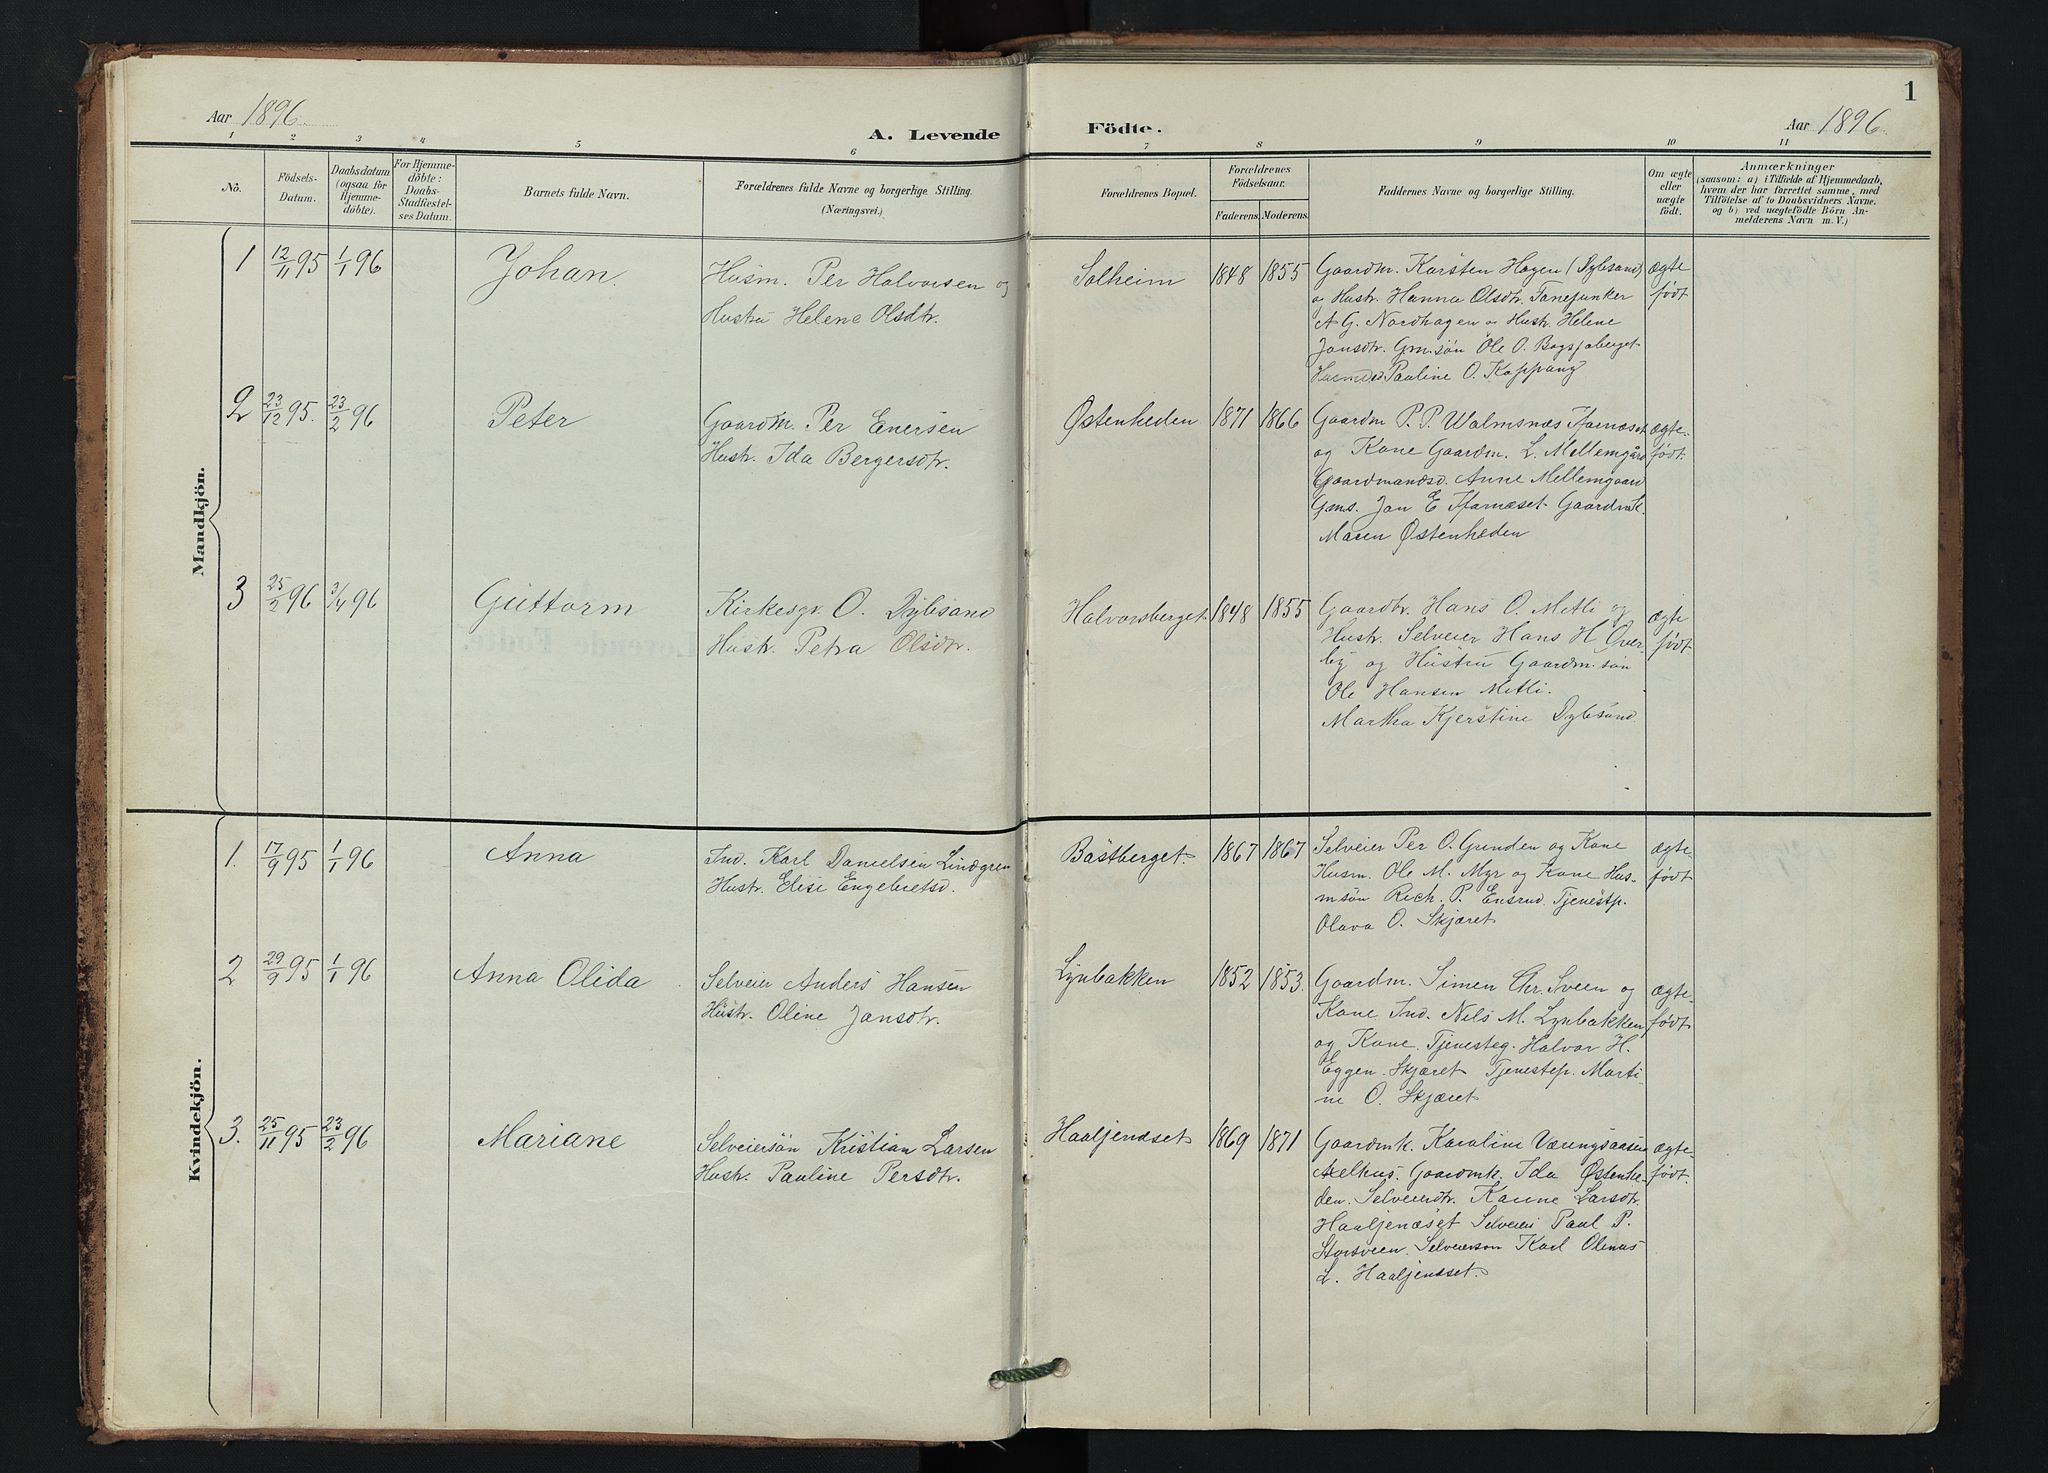 Aar 1896.
A. Levende Födte.
Aar 1896.
1
1 2 3 4 5 6 7 8 9 10 11
No.
Födsels-
Datum.
Daabsdatum
(ogsaa for
Hjemme-
döbte).
For Hjemme-
döbte:
Daabs-
Stadfæstel-
ses Datum.
Barnets fulde Navn.
Forældrenes fulde Navne og borgerlige Stilling.
(Næringsvei.)
Forældrenes Bopæl.
Forældrenes
Födselsaar.
Faderens. Moderens.
Faddernes Navne og borgerlige Stilling.
Om ægte
eller
uægte
födt.
Anmærkninger
(saasom: a) i Tilfælde af Hjemmedaab,
hvem der har forrettet samme, med
Tilföielse af to Daabsvidners Navne,
og b) ved uægtefödte Börn An-
melderens Navn m. V.)
Mandkjön.
1 12/11 95 1/1 96
Johan.
Husm. Per Halvorsen og
Hustru Helene Olsdtr.
Solheim 1848 1855
Gaardm. Karsten Hagen (Dybsand)
og Hustr. Hanna Olsdtr. Fanejunker
A G. Nordhagen og Hustr. Helene
Jansdtr. Gm.søn Ole O. Bagsjøberget
Husmdd Pauline O. Koppang
ægte
født
2 23/12 95. 23/2 96
Peter
Gaardm. Per Enersen
Hustr. Ida Bergersdtr.
Østenheden 1871 1866
Gaardm P. P. Walmsnæs
og Kone Gaardm. L. Mellemgård
Gaardmandsd. Anne Mellemgaard
Gms. Jan E. Gaardmk.
Maren Østenheden
ægte-
født.
3 25/2 96 3/4 96
Guttorm
Kirkesgr. O. Dybsand
Hustr. Petra Olsdtr.
Halvorsberget 1848 1855
Gaardbr. Hans O. Metli og
Hustr. Selveier Hans H. Øver-
by og Hustru Gaardm.søn
Ole Hansen Metli.
Martha Kjerstine Dybsand
ægte
født
Kvindekjön.
1. 17/9 95 1/1 96
Anna
Ind. Karl Danielsen Lindgren
Hustr. Elise Engebretsd.
Bastberget. 1867 1867
Selveier Per O. Grunden og Kone
Husm. Ole M. Myr og Kone Hus-
msøn Rich. P. Ensrud. Tjenestp.
Olava O. Skjæret
ægte
født
2 29/9 95 1/1 96
Anna Olida
Selveier Anders Hansen
Hustr. Oline Jansdtr.
Lynbakken 1852 1853.
Gaardm. Simen Chr. Sveen og
Kone Ind. Nils M. Lynbakken
og Kone. Tjenesteg. Halvor H.
Eggen. Skjæret Tjenestep. Marti-
ne O. Skjæret
ægte-
født
3. 25/11 95 23/2 96
Mariane
Selveiersøn Kristian Larsen
Hustr. Pauline Persdtr.
Haaljendset 1869 1871
Gaardmk. Karoline Væringsaasen
Gaardmk. Ida Østenhe-
den. Selveierdtr. Karine Larsdtr.
Haaljenæset Selveier Paul P.
Storsveen. Selveierson Karl Olinus
L. Haaljendset.
ægte-
født.